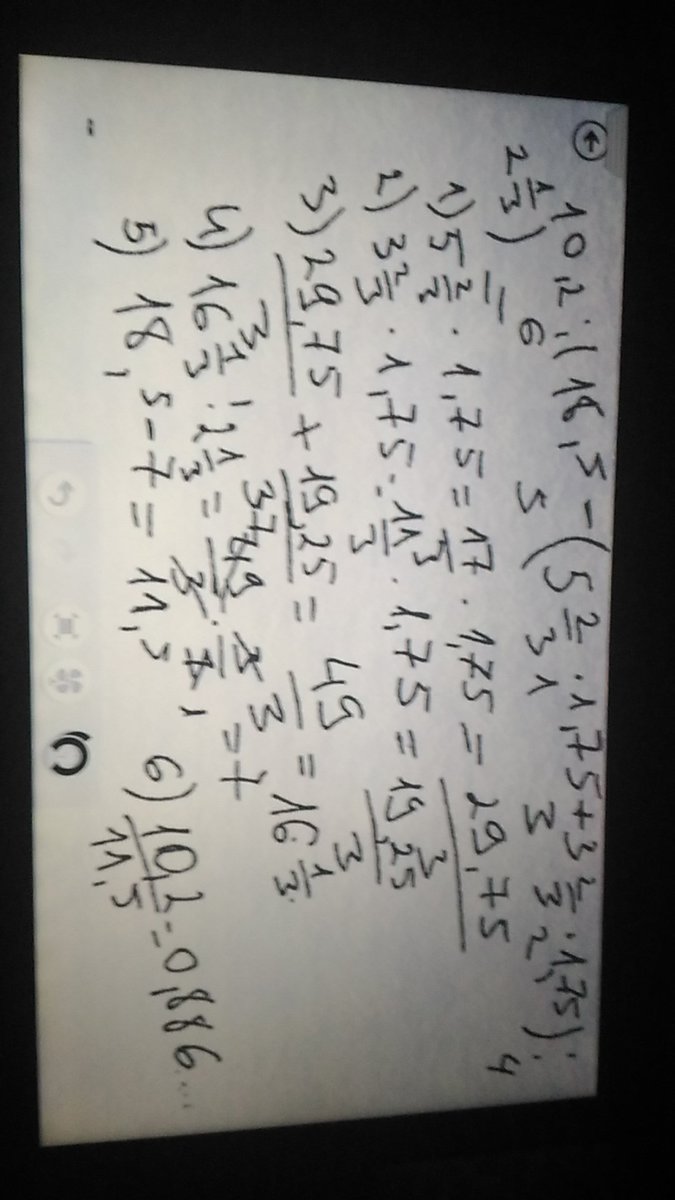 10,2:(18,5-(5 2/3 · 1,75+3 2/3 · 1,75):
2 1/3)
6 5 1 3 2 4
1) 5 2/3 · 1,75 = 17/3 · 1,75 = 29,75/3
2) 3 2/3 · 1,75 = 11/3 · 1,75 = 19,25/3
3) 29,75/3 + 19,25/3 = 49/3 = 16 1/3
4) 16 1/3 : 2 1/3 = 49/3 · 3/7 = 7
5) 18,5-7 = 11,5
6) 10,2/11,5 = 0,886...